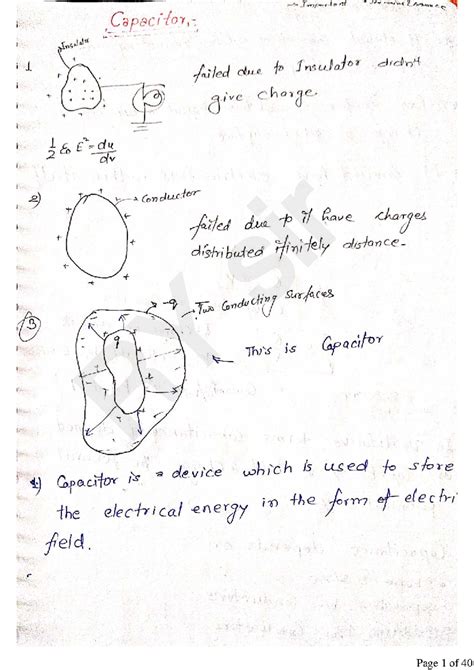 Capacitor :-
1 Insulator
failed due to Insulator didn't
give charge
1/2 ε0 E² = du/dv
2) Conductor
failed due to it have charges
distributed ifinitely distance.
3 -q Two Conducting Surfaces
q
This is Capacitor
1) Capacitor is a device which is used to store
the electrical energy in the form of electri
field.
AY sir
Page 1 of 40